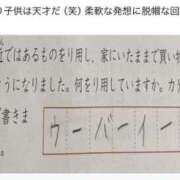 り子供は天才だ（笑）柔軟な発想に脱帽な回
近ではあるものをり用し、家にいたままで買い物
うになりました。何をり用していますか。カタ
書きま
ウーバーイー